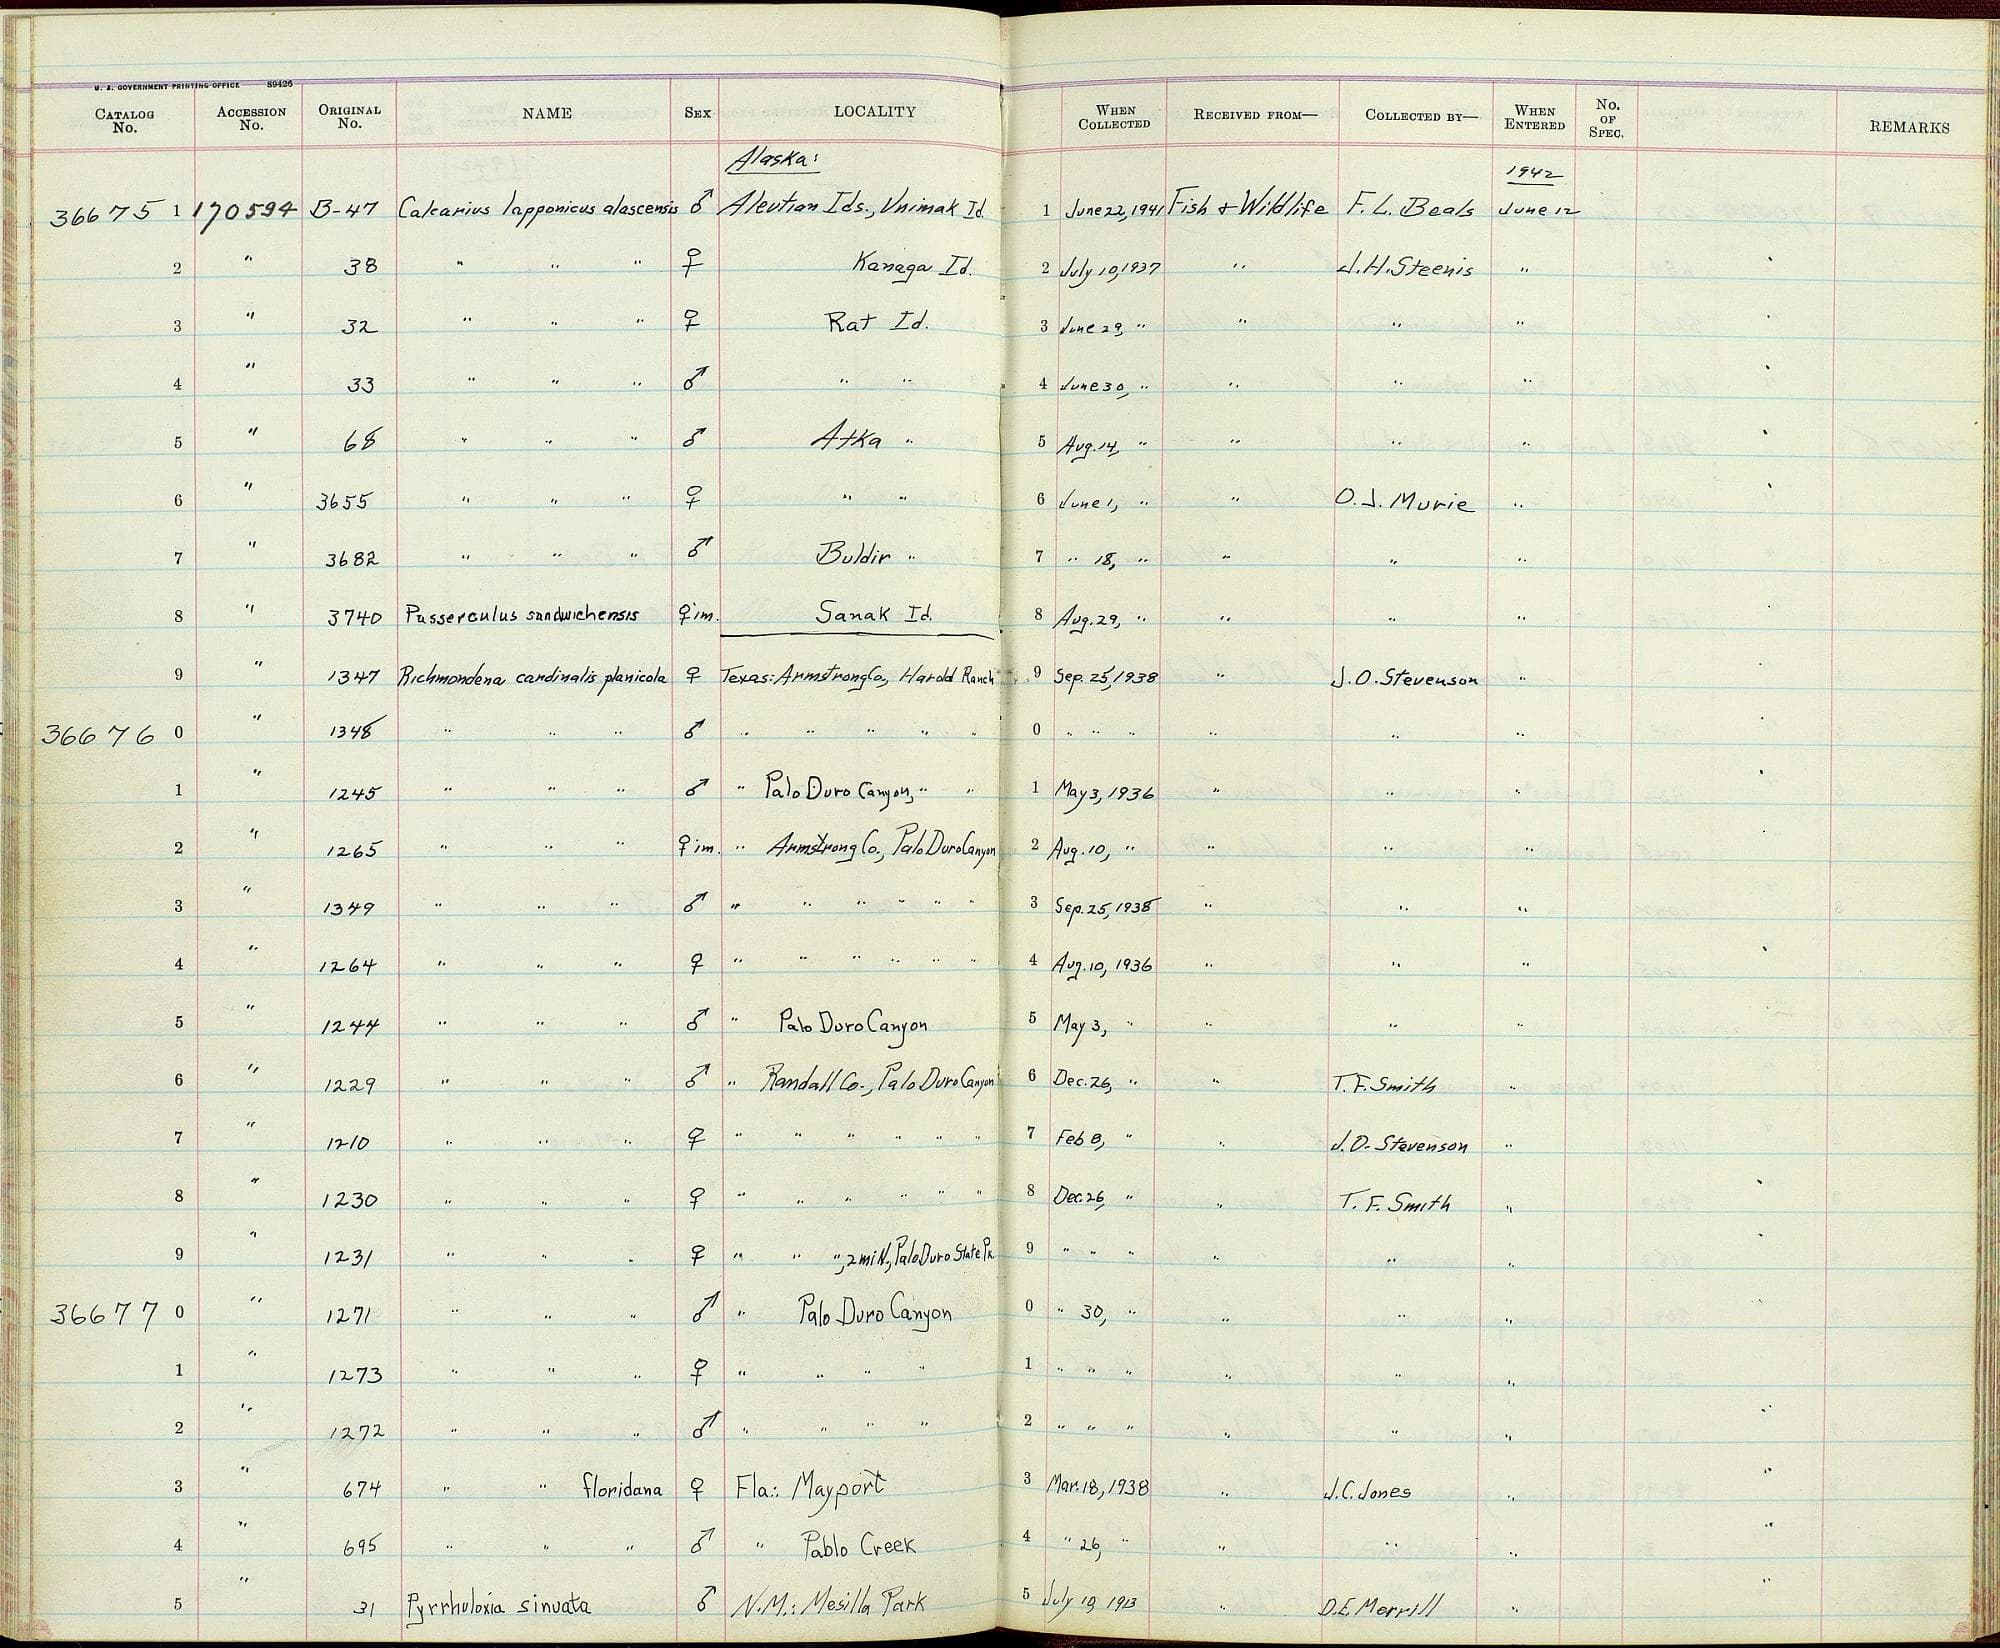 U. S. GOVERNMENT PRINTING OFFICE 89426
CATALOG No. ACCESSION No. ORIGINAL No. NAME SEX LOCALITY WHEN COLLECTED RECEIVED FROM— COLLECTED BY— WHEN ENTERED No. OF SPEC. REMARKS
Alaska: 1942
36675 1 170594 B-47 Calcarius lapponicus alascensis ♂ Aleutian Ids., Unimak Id. 1 June 22, 1941 Fish & Wildlife F. L. Beals June 12
2 " 38 " " " ♀ Kanaga Id. 2 July 10, 1937 " J. H. Steenis "
3 " 32 " " " ♀ Rat Id. 3 June 29, " " " "
4 " 33 " " " ♂ " " 4 June 30, " " " "
5 " 68 " " " ♂ Atka " 5 Aug. 14, " " " "
6 " 3655 " " " ♀ " " 6 June 1, " " O. J. Murie "
7 " 3682 " " " ♂ Buldir " 7 " 18, " " " "
8 " 3740 Passerculus sandwichensis ♀ im. Sanak Id. 8 Aug. 29, " " " "
9 " 1347 Richmondena cardinalis planicola ♀ Texas: Armstrong Co., Harold Ranch 9 Sep. 25, 1938 " J. O. Stevenson "
36676 0 " 1348 " " " ♂ " " " " " 0 " " " " " "
1 " 1245 " " " ♂ " Palo Duro Canyon, " " 1 May 3, 1936 " " "
2 " 1265 " " " ♀ im. " Armstrong Co., Palo Duro Canyon 2 Aug. 10, " " " "
3 " 1349 " " " ♂ " " " " " " 3 Sep. 25, 1938 " " "
4 " 1264 " " " ♀ " " " " " " 4 Aug. 10, 1936 " " "
5 " 1244 " " " ♂ " Palo Duro Canyon 5 May 3, " " " "
6 " 1229 " " " ♂ " Randall Co., Palo Duro Canyon 6 Dec. 26, " " T. F. Smith "
7 " 1210 " " " ♀ " " " " " " 7 Feb 8, " " J. O. Stevenson "
8 " 1230 " " " ♀ " " " " " " 8 Dec. 26, " " T. F. Smith "
9 " 1231 " " " ♀ " " ", 2 mi N., Palo Duro State Pk. 9 " " " " " "
36677 0 " 1271 " " " ♂ " Palo Duro Canyon 0 " 30, " " " "
1 " 1273 " " " ♀ " " " " 1 " " " " " "
2 " 1272 " " " ♂ " " " " 2 " " " " " "
3 " 674 " " floridana ♀ Fla.: Mayport 3 Mar. 18, 1938 " J. C. Jones "
4 " 695 " " " ♂ " Pablo Creek 4 " 26, " " " "
5 " 31 Pyrrhuloxia sinuata ♂ N.M.: Mesilla Park 5 July 19 1913 " D. E. Merrill "